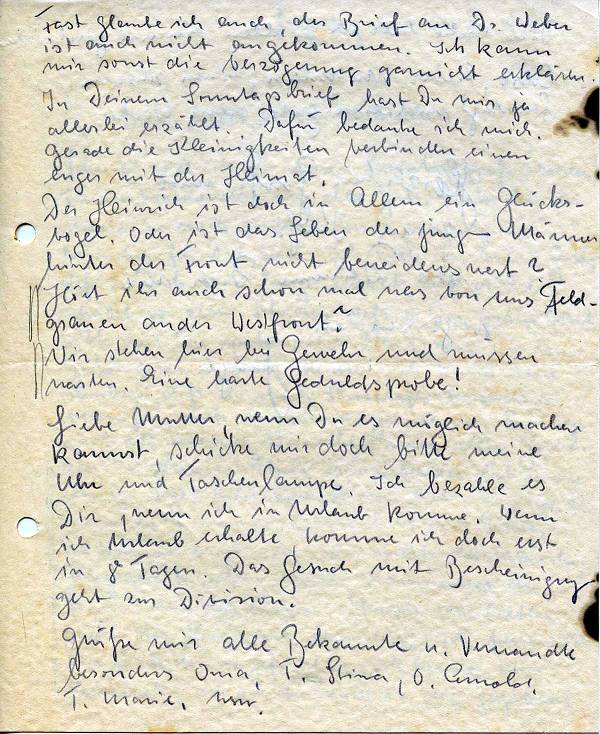 Fast glaube ich auch, der Brief an Dr. Weber
ist auch nicht angekommen. Ich kann
mir sonst die Verzögerung garnicht erklären.
In Deinem Sonntagsbrief hast Du mir ja
allerlei erzählt. Dafür bedanke ich mich.
Gerade die Kleinigkeiten verbinden einen
enger mit der Heimat.
Der Heinrich ist doch in Allem ein Glücks-
vogel. Oder ist das Leben der jungen Männer
hinter der Front nicht beneidenswert?
Hört ihr auch schon mal was von uns Feld-
grauen an der Westfront?
Wir stehen hier bei Gewehr und müssen
warten. Eine harte Geduldsprobe!
Liebe Mutter, wenn Du es möglich machen
kannst, schicke mir doch bitte meine
Uhr und Taschenlampe. Ich bezahle es
Dir, wenn ich in Urlaub komme. Wenn
ich Urlaub erhalte, komme ich doch erst
in 8 Tagen. Das Gesuch mit Bescheinigung
geht zur Division.
Grüße mir alle Bekannte u. Verwandte
besonders Oma, T. Stina, O. Arnold,
T. Marie, usw.